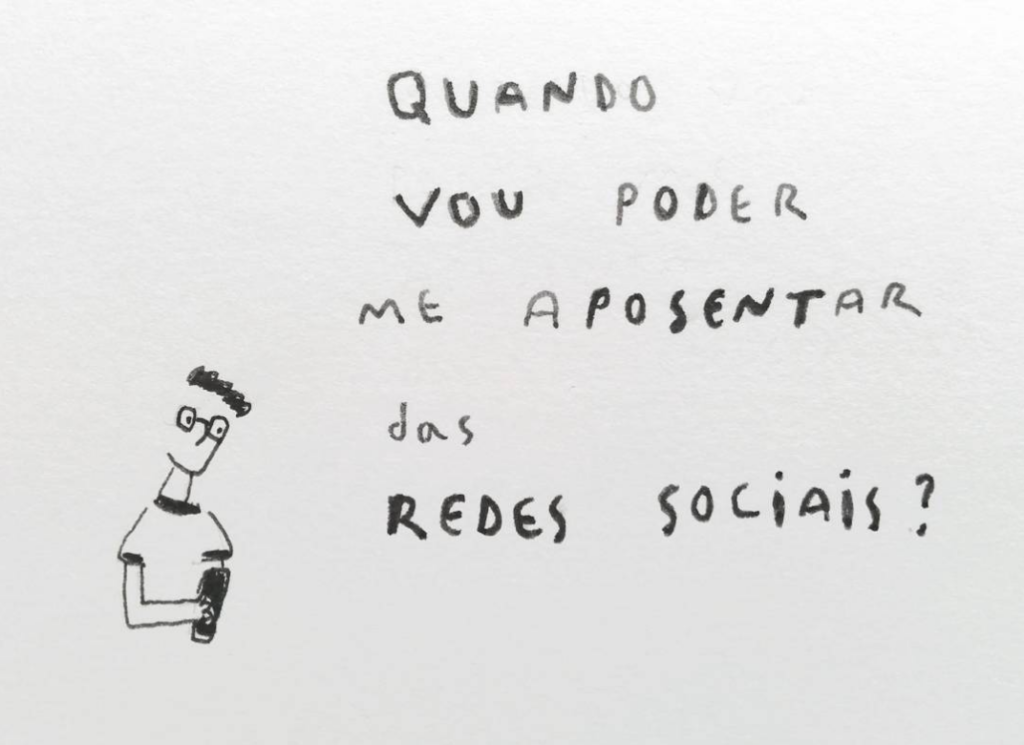 QUANDO
VOU PODER
ME APOSENTAR
das
REDES SOCIAIS?